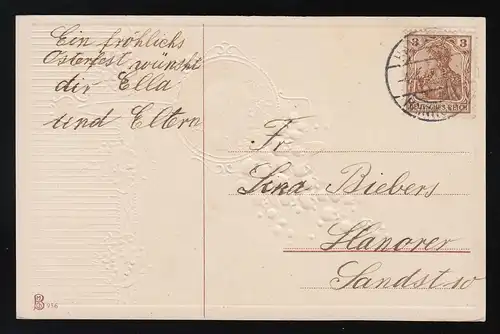 Ein fröhlichs
Osterfest wünscht
dir Ella
und Eltern
3 3
DEUTSCHES REICH
Fr
Biebers
Hanover
Sandstr 10
B 936